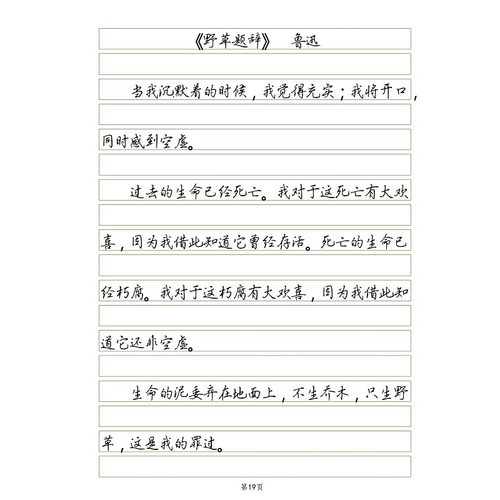 《野草题辞》 鲁迅
当我沉默着的时候，我觉得充实；我将开口，
同时感到空虚。
过去的生命已经死亡。我对于这死亡有大欢
喜，因为我借此知道它曾经存活。死亡的生命已
经朽腐。我对于这朽腐有大欢喜，因为我借此知
道它还非空虚。
生命的泥委弃在地面上，不生乔木，只生野
草，这是我的罪过。
第19页